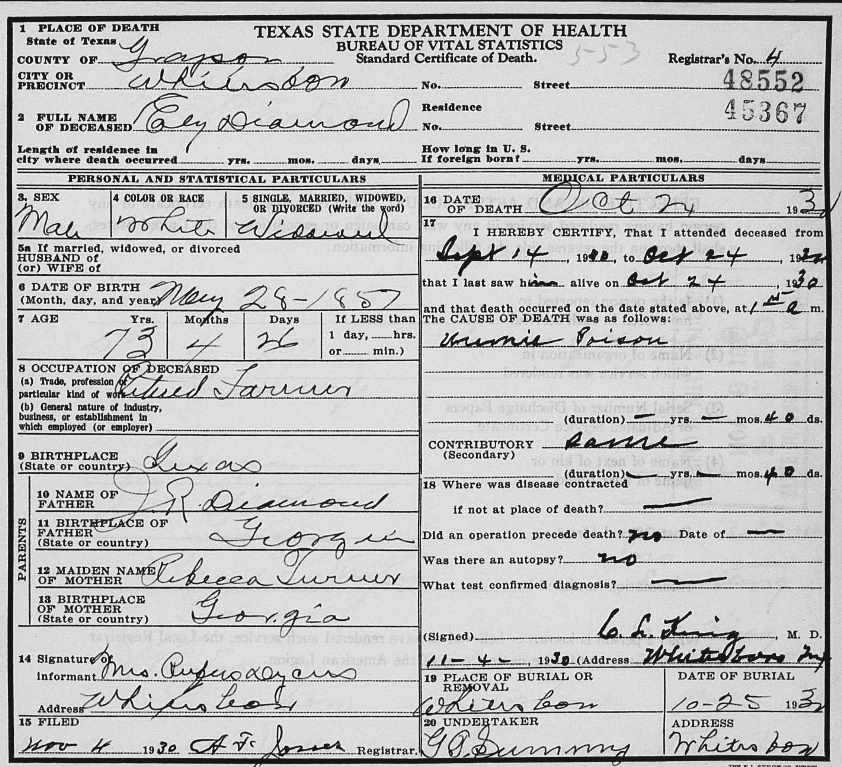 1 PLACE OF DEATH
TEXAS STATE DEPARTMENT OF HEALTH
State of Texas
BUREAU OF VITAL STATISTICS
COUNTY OF Grayson
Standard Certificate of Death.
553
Registrar's No. 4
CITY OR PRECINCT Whitesboro
No. Street
48552
Residence
45367
2 FULL NAME OF DECEASED Ely Diamond
No. Street
Length of residence in city where death occurred yrs. mos. days
How long in U. S. If foreign born? yrs. mos. days
PERSONAL AND STATISTICAL PARTICULARS
3. SEX
Male
4 COLOR OR RACE
White
5 SINGLE, MARRIED, WIDOWED, OR DIVORCED (Write the word)
Widowed
5a If married, widowed, or divorced
HUSBAND of
(or) WIFE of
6 DATE OF BIRTH
(Month, day, and year) May 28-1857
7 AGE Yrs. Months Days If LESS than
73 4 26 1 day, hrs.
or min.)
8 OCCUPATION OF DECEASED
(a) Trade, profession or
particular kind of work Retired Farmer
(b) General nature of industry,
business, or establishment in
which employed (or employer)
9 BIRTHPLACE
(State or country) Texas
PARENTS
10 NAME OF FATHER J. R. Diamond
11 BIRTHPLACE OF FATHER
(State or country) Georgia
12 MAIDEN NAME OF MOTHER Rebecca Turner
13 BIRTHPLACE OF MOTHER
(State or country) Georgia
14 Signature of
informant Mrs. Rufus
Address Whitesboro
15 FILED
Nov 4 1930 A. F. Registrar.
MEDICAL PARTICULARS
16 DATE OF DEATH Oct 24 1930
17
I HEREBY CERTIFY, That I attended deceased from
Sept 14, 1930, to Oct 24, 1930
that I last saw him alive on Oct 24, 1930
and that death occurred on the date stated above, at 1 a m.
The CAUSE OF DEATH was as follows:
Uremic Poison
(duration) — yrs. — mos. 40 ds.
CONTRIBUTORY same
(Secondary)
(duration) — yrs. — mos. 40 ds.
18 Where was disease contracted
if not at place of death? —
Did an operation precede death? no Date of —
Was there an autopsy? no
What test confirmed diagnosis? —
(Signed) C. L. King, M. D.
11-4-, 1930 (Address Whitesboro
19 PLACE OF BURIAL OR REMOVAL
Whitesboro
DATE OF BURIAL
10-25 1930
20 UNDERTAKER
ADDRESS
Whitesboro